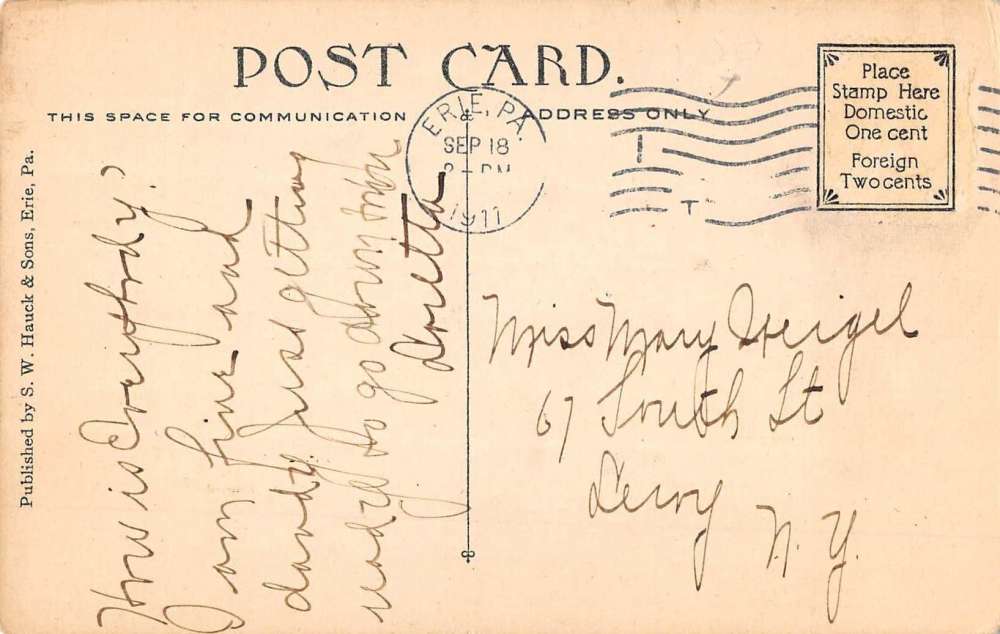 POST CARD.
THIS SPACE FOR COMMUNICATION & ADDRESS ONLY
Place
Stamp Here
Domestic
One cent
Foreign
Two cents
ERIE, PA.
SEP 18
PM
1911
Published by S. W. Hauck & Sons, Erie, Pa.
How is Everybody?
I am fine and
dandy. Just getting
ready to go down town
Loretta
Miss Mary Heigel
67 South St
Leroy
N. Y.